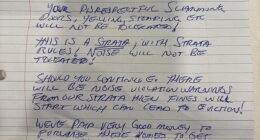 YOUR DISRESPECTFUL SLAMMING
DOORS, YELLING, STOMPING ETC
WILL NOT BE TOLERATED!
THIS IS A STRATA, WITH STRATA
RULES! NOISE WILL NOT BE
TOLERATED!
SHOULD YOU CONTINUE THERE
WILL BE NOISE VIOLATION WARNINGS
FROM OUR STRATA THEN FINES WILL
START WHICH CAN LEAD TO EVICTION!
WE'VE PAID VERY GOOD MONEY TO
PURCHASE HOMES TO GET